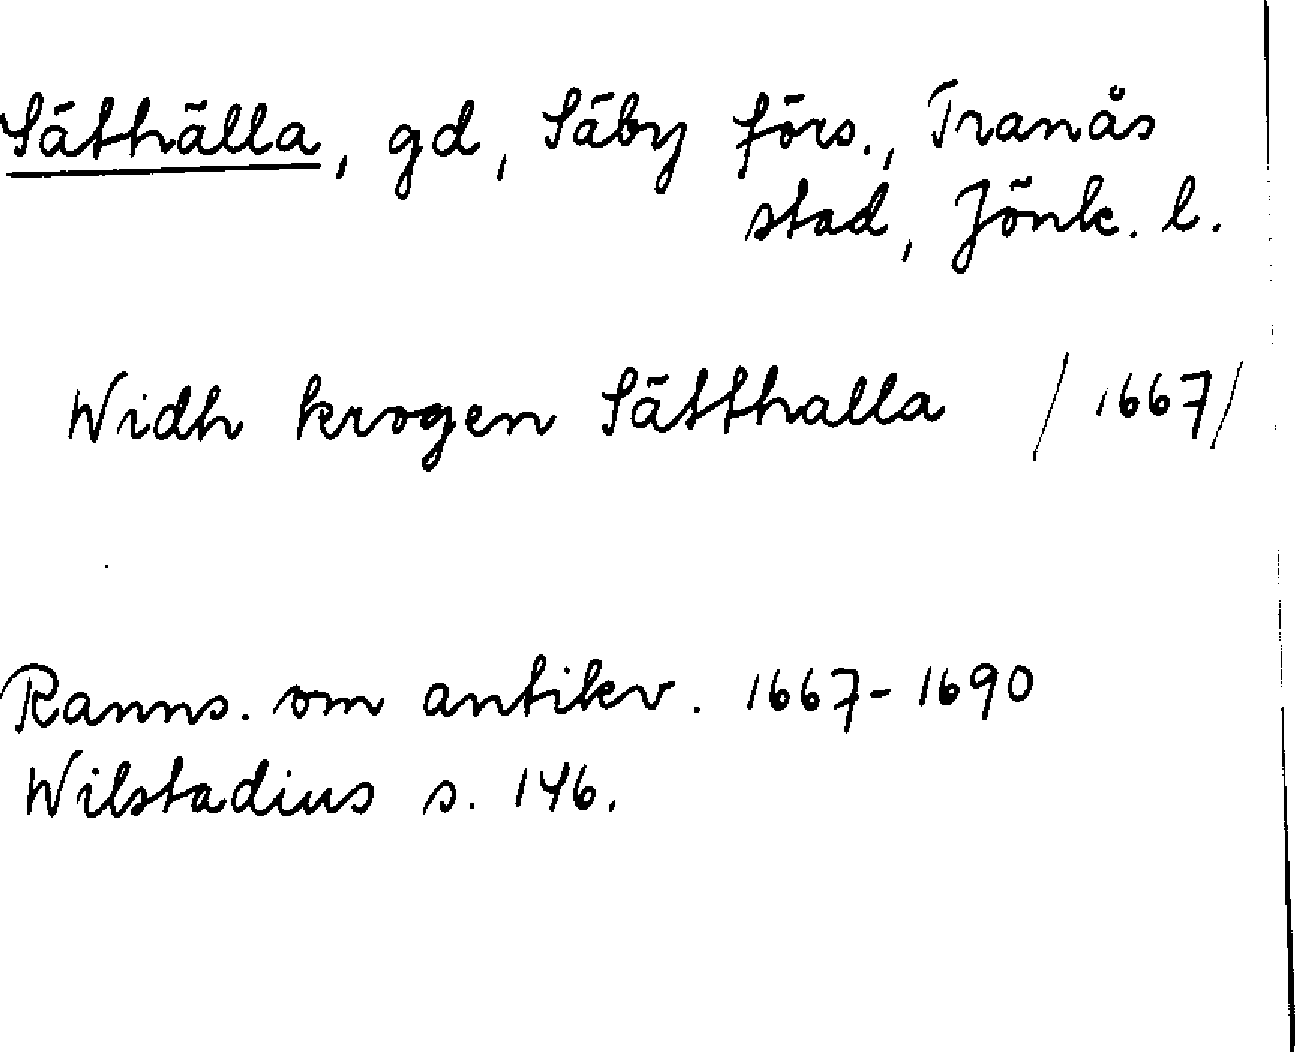 Säthälla, gd, Säby förs., Tranås
stad, Jönk. l.
Widh krogen Sätthalla /1667/
Ranns. om antikv. 1667-1690
Wilstadius s. 146.